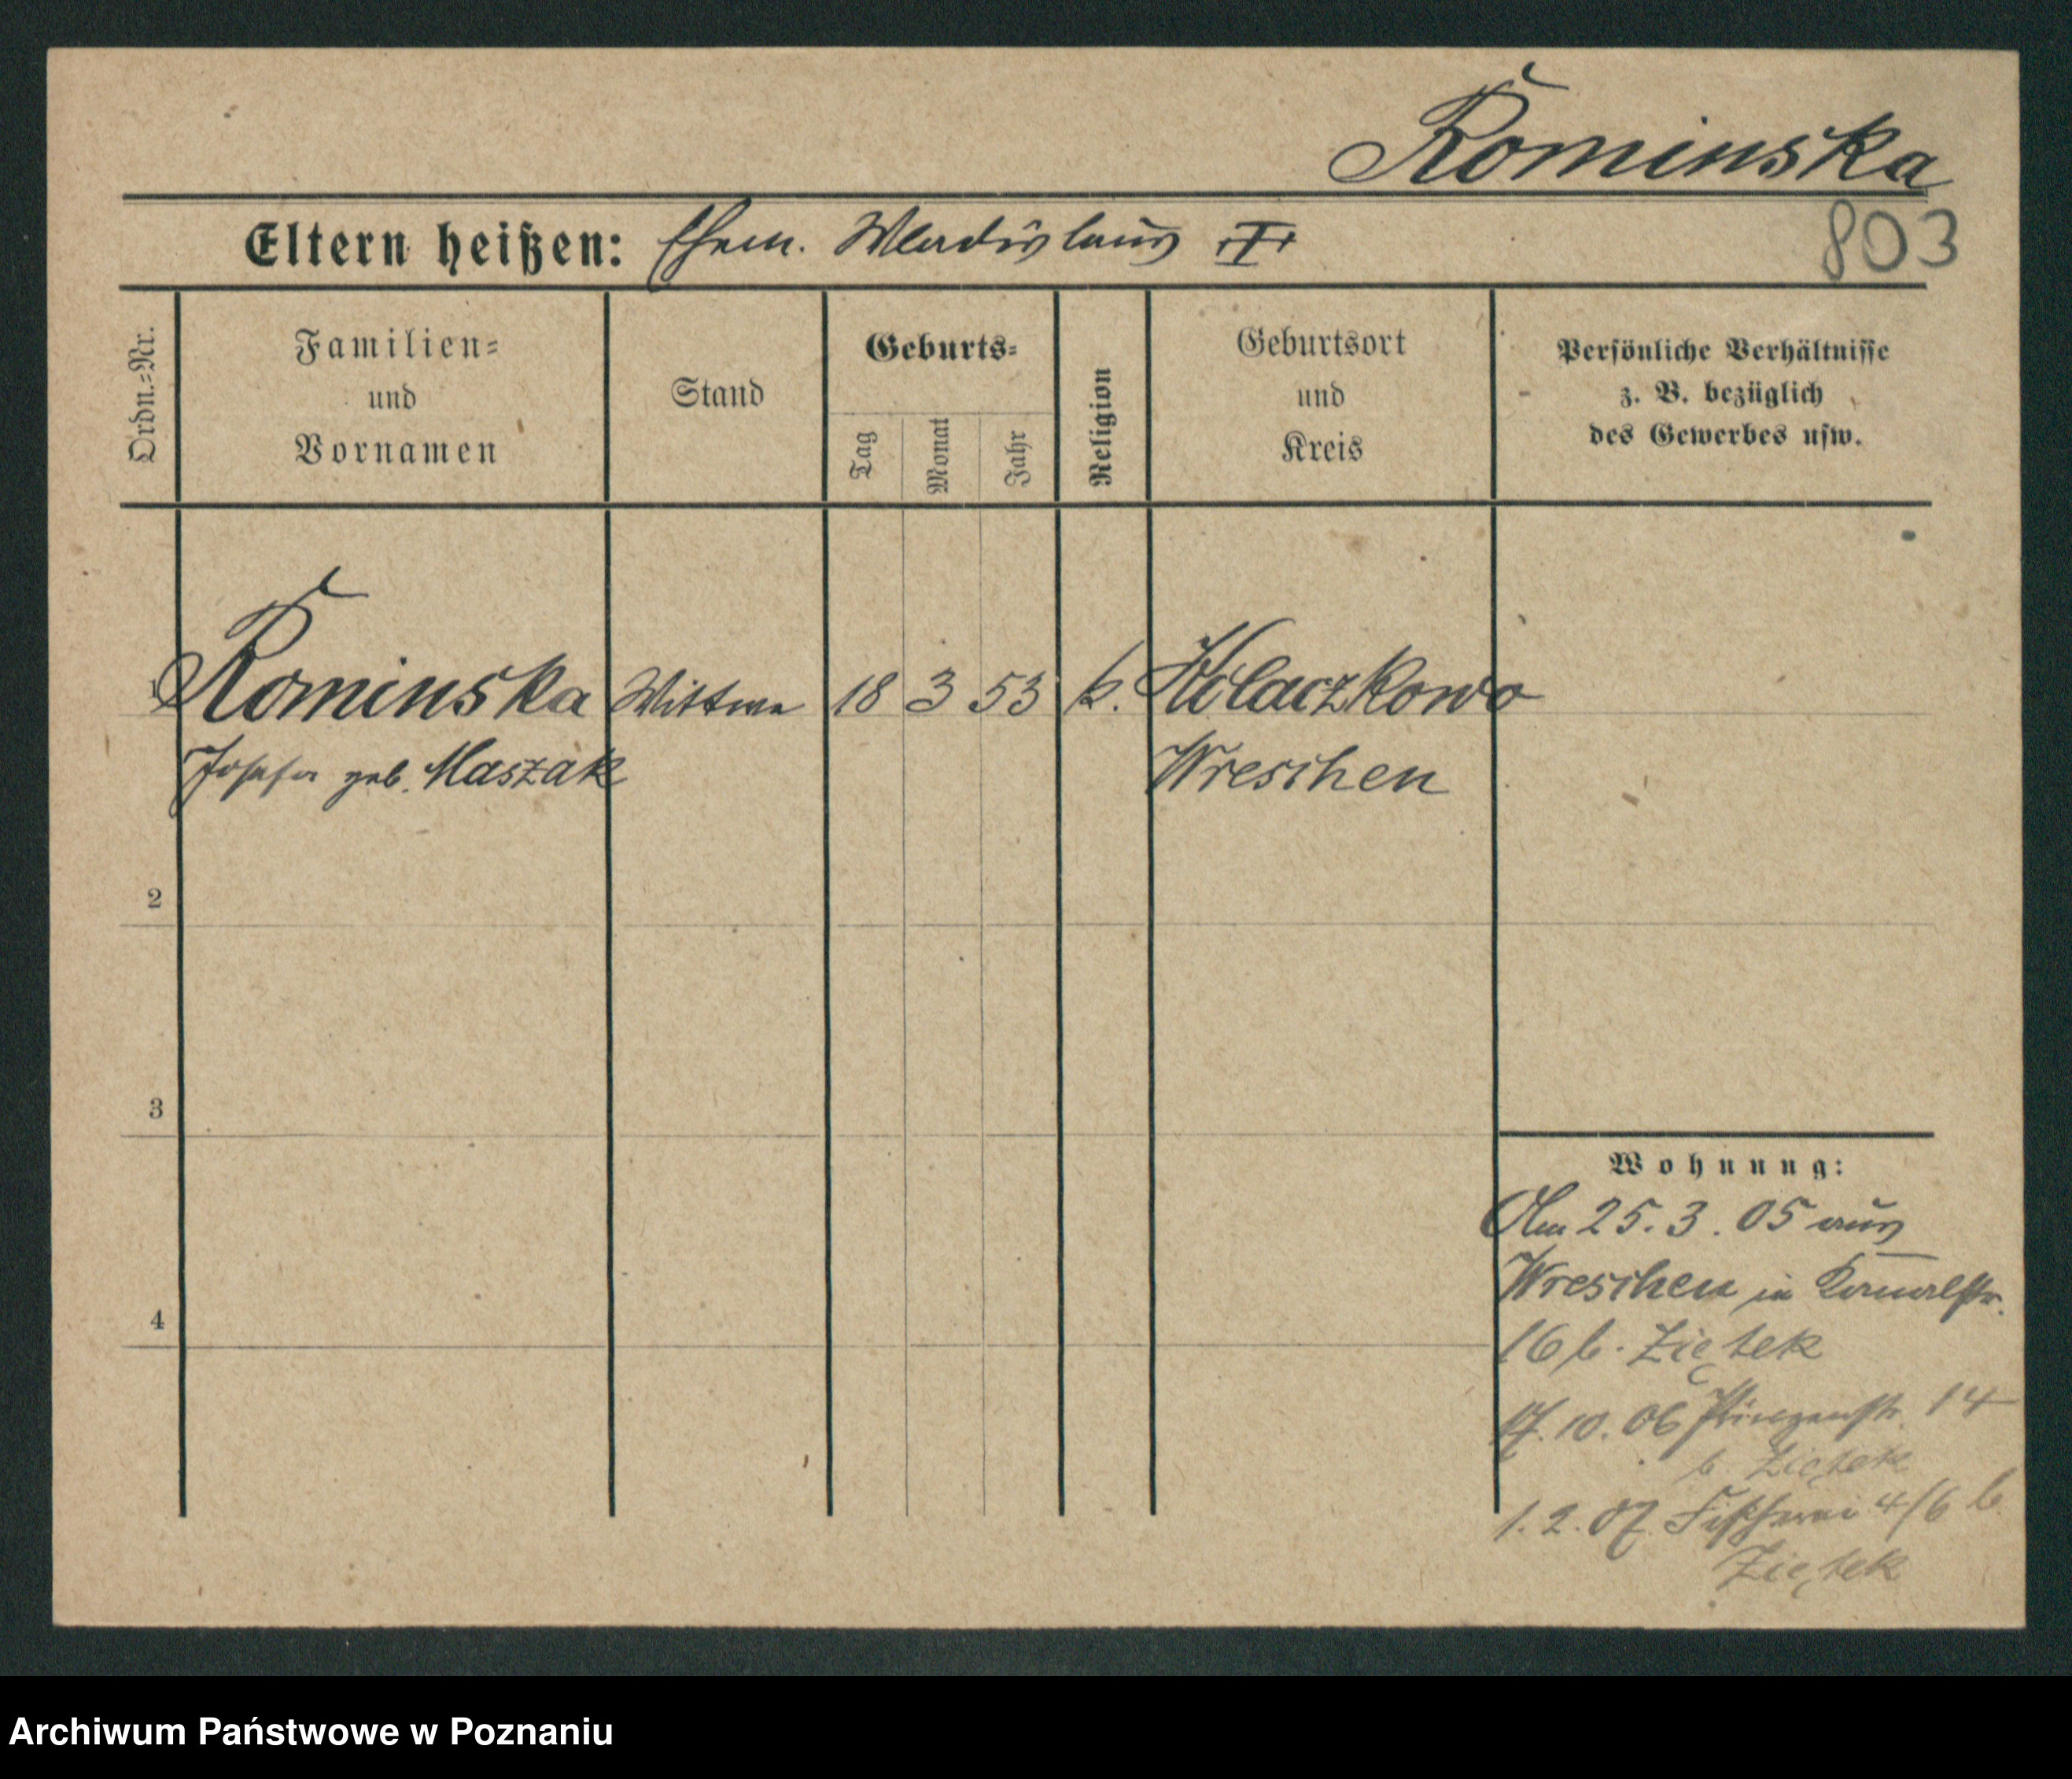 Kominska
803
Eltern heißen: Ehem. Wladislaus
Ordn.=Nr.
Familien=
und
Vornamen
Stand
Geburts=
Tag
Monat
Jahr
Religion
Geburtsort
und
Kreis
Persönliche Verhältnisse
z. B. bezüglich
des Gewerbes usw.
1 Kominska Wittwe 18 3 53 k. Kolaczkowo
Josefa geb. Maszak Wreschen
2
3
4
Wohnung:
Am 25. 3. 05 aus
Wreschen in Kanalstr.
16 b. Ziętek
10. 06 Prinzenstr. 14
b. Ziętek
1. 2. 07 Fischerei 4/6 b
Ziętek
Archiwum Państwowe w Poznaniu